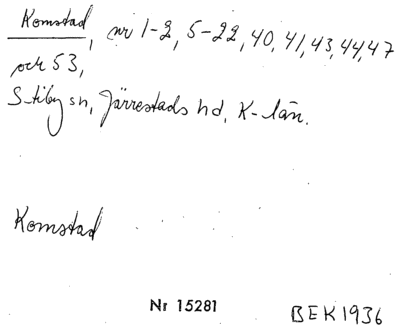 Komstad, nr 1-2, 5-22, 40, 41, 43, 44, 47
och 53,
S-tiby sn, Järrestads hd, K-län.
Komstad
Nr 15281
BEK1936